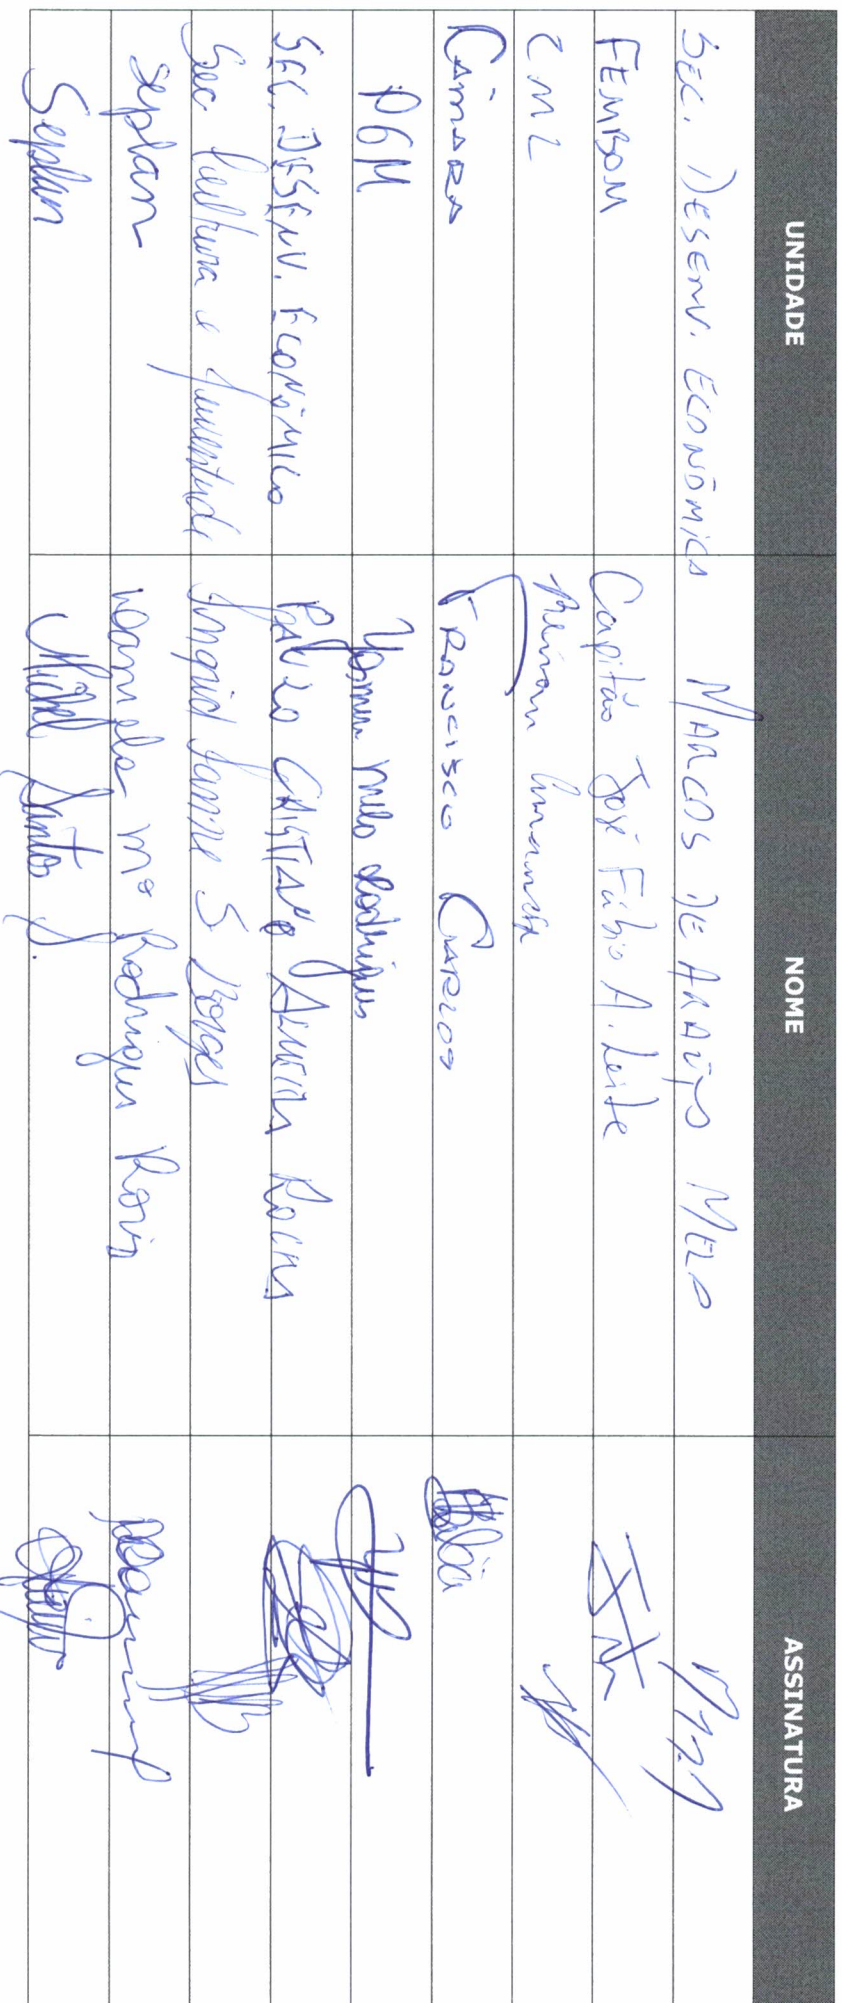 UNIDADE NOME ASSINATURA
SEC. DESENV. ECONÔMICA MARCOS DE ARAÚJO MELO
FEMBOM Capitão José Fábio A. Leite
CML
CÂMARA FRANCISCO CARLOS
PGM Yasmin Melo Rodrigues
SEC. DESENV. ECONÔMICO PAULO CRISTIANO ALMEIDA ROCHA
Sec Cultura e Juventude Ingrid S Borges
Seplan Mª Rodrigues
Seplan Michel Santos S.